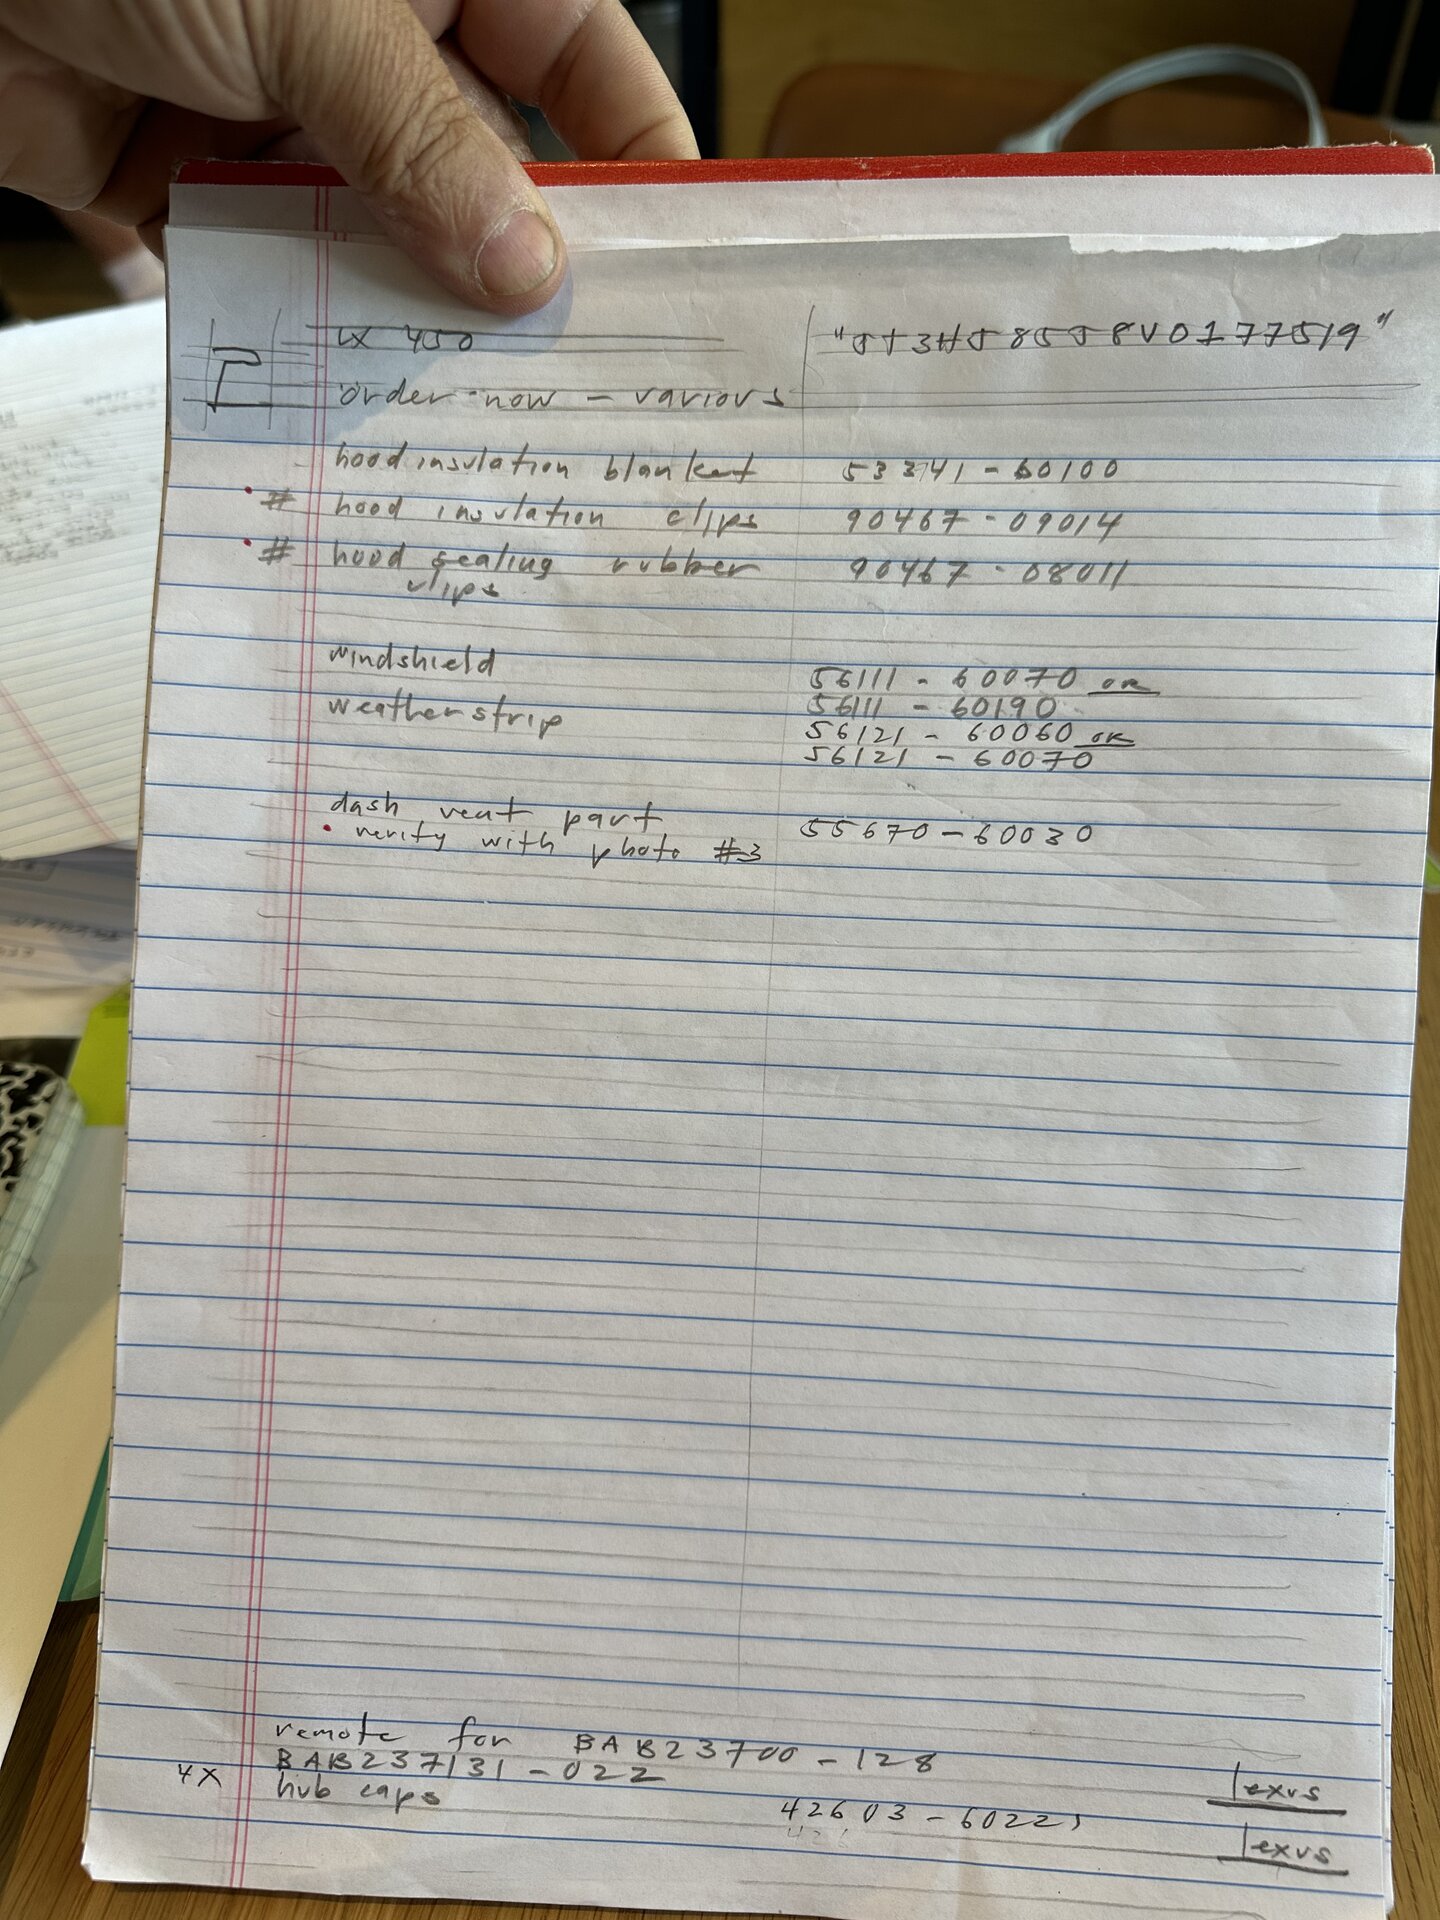 LX 450 "JT3HJ85J8V0177519"
order now - various
hood insulation blanket 53341-60100
# hood insulation clips 90467-09014
# hood sealing rubber 90467-08011
clips
windshield 56111-60070 OR
56111-60190
weatherstrip 56121-60060 OR
56121-60070
dash vent part 55670-60030
• verify with photo #3
remote for BAB23700-128
BAB237131-022 lexus
4x hub caps 42603-60221 lexus